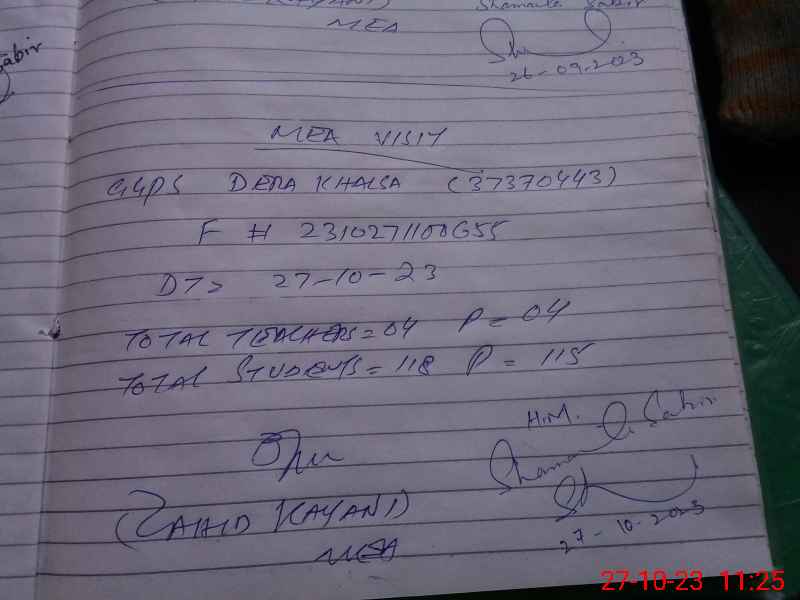 Shamaila Sabir
MEA
26-09-2023
Sabir
MEA VISIT
GGPS DERA KHALSA (37370443)
F # 2310271100G55
DT> 27-10-23
TOTAL TEACHERS = 04 P = 04
TOTAL STUDENTS = 118 P = 115
H.M.
Shamaila Sabir
(ZAHID KAYANI)
27-10-2023
MEA
27-10-23 11:25